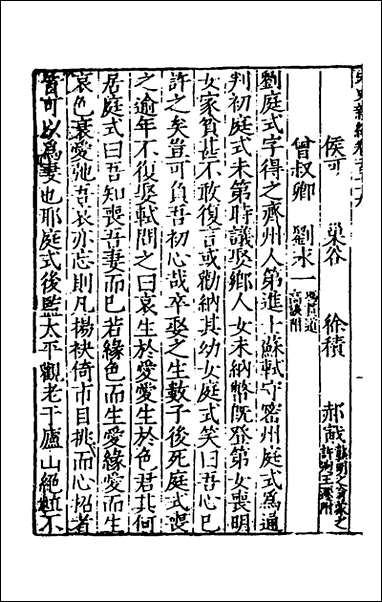 宋史新編卷
侯可　巢谷　徐積　郝戭
曾叔卿　劉永一
劉庭式字得之齊州人第進士蘇軾守密州庭式為通
判初庭式未第時議娶鄉人女未納幣旣登第女喪明
女家貧甚不敢復言或勸納其幼女庭式笑曰吾心已
許之矣豈可負吾初心哉卒娶之生數子後死庭式喪
之逾年不復娶軾問之曰哀生於愛愛生於色君其何
居庭式曰吾知喪吾妻而已若緣色而生愛緣愛而生
哀色衰愛弛吾哀亦忘則凡揚袂倚市目挑而心招者
皆可以為妻也耶庭式後監太平觀老于廬山絕粒不